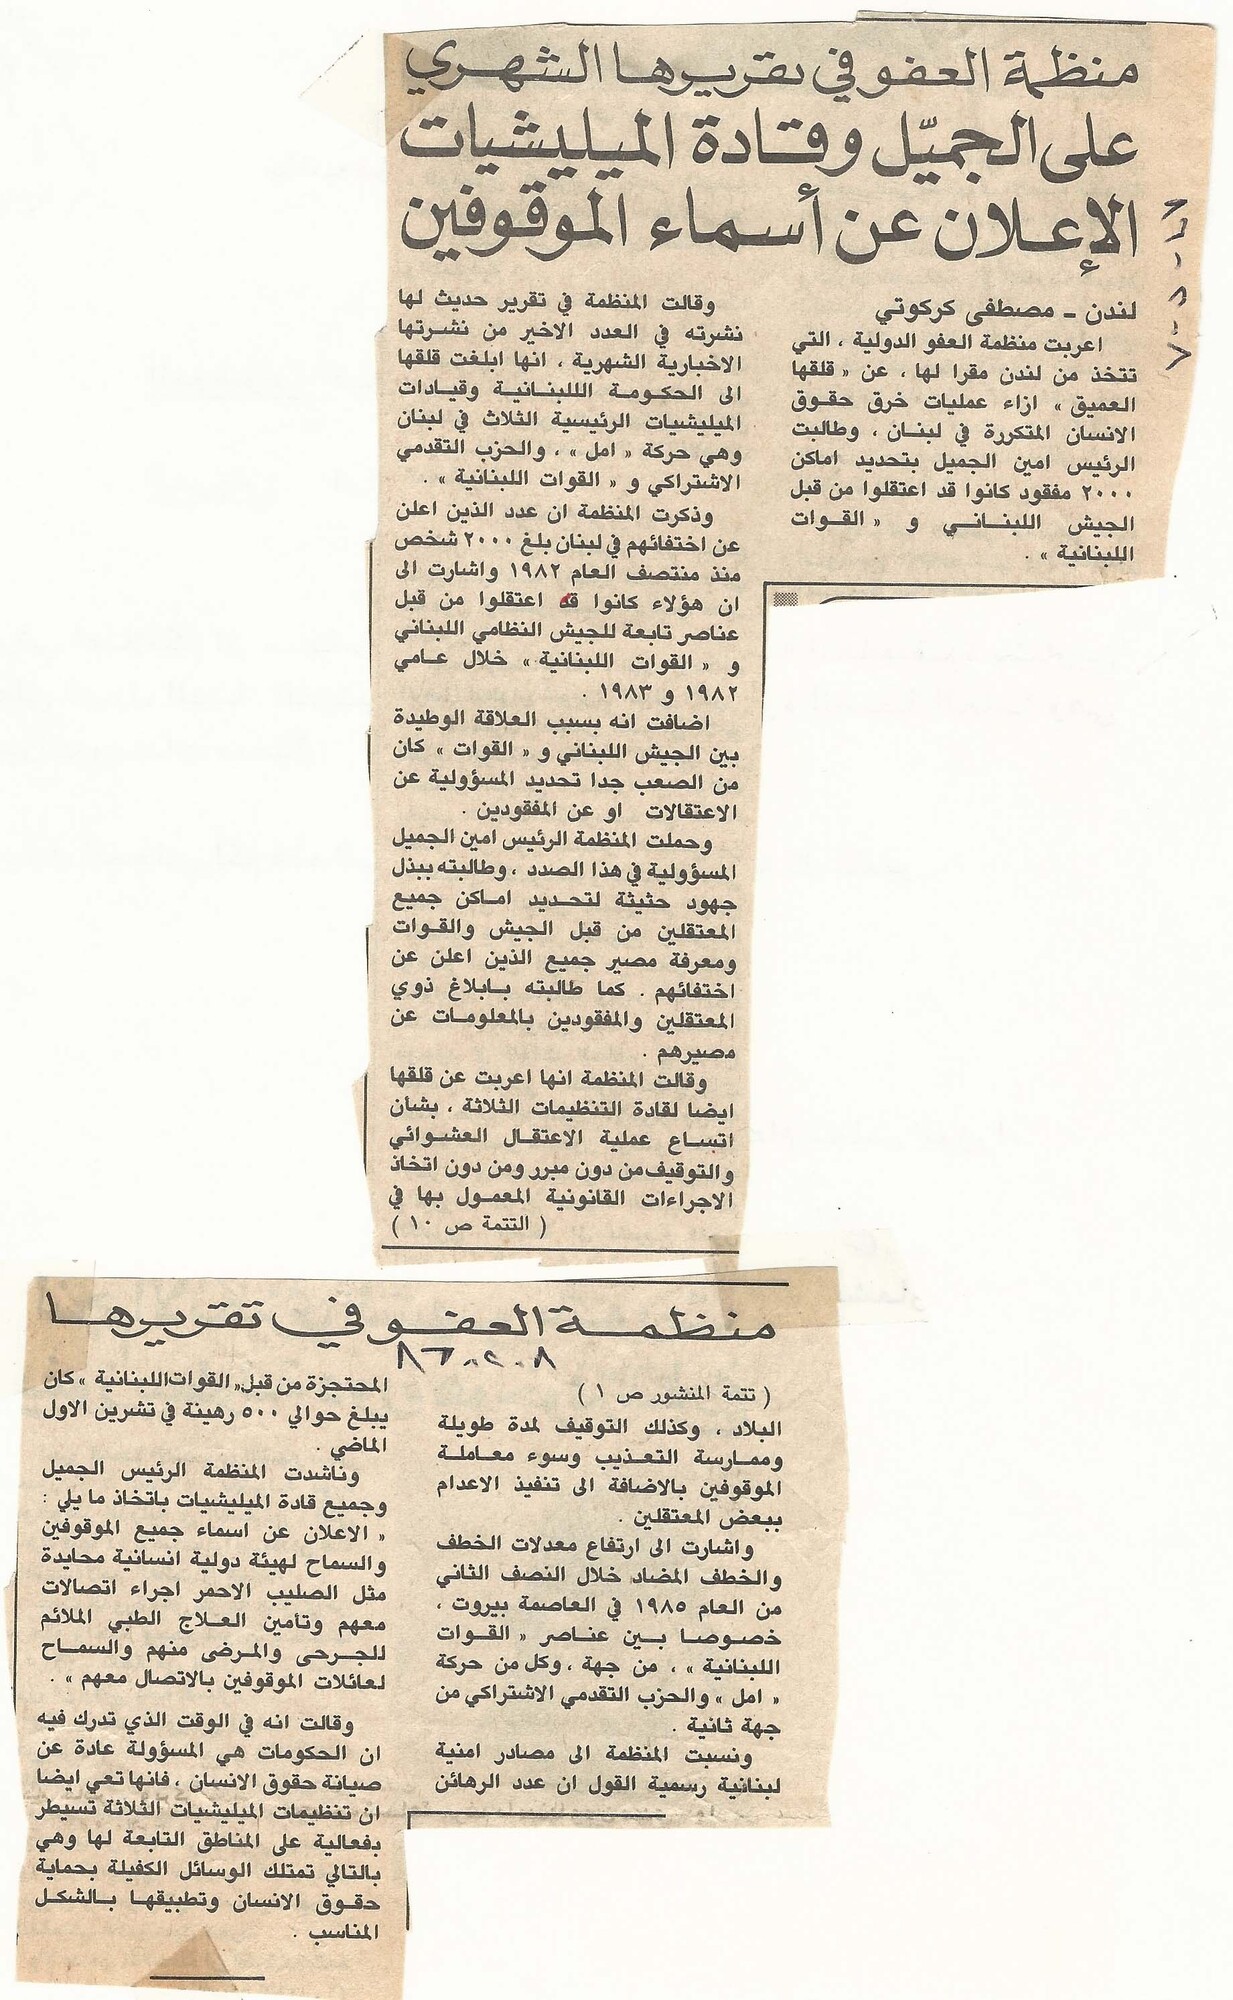 منظمة العفو في تقريرها الشهري
على الجميّل وقادة الميليشيات
الإعلان عن أسماء الموقوفين
لندن ـ مصطفى كركوتي
اعربت منظمة العفو الدولية ، التي
تتخذ من لندن مقرا لها ، عن « قلقها
العميق » ازاء عمليات خرق حقوق
الانسان المتكررة في لبنان ، وطالبت
الرئيس امين الجميل بتحديد اماكن
٢٠٠٠ مفقود كانوا قد اعتقلوا من قبل
الجيش اللبناني و « القوات
اللبنانية » .
وقالت المنظمة في تقرير حديث لها
نشرته في العدد الاخير من نشرتها
الاخبارية الشهرية ، انها ابلغت قلقها
الى الحكومة الللبنانية وقيادات
الميليشيات الرئيسية الثلاث في لبنان
وهي حركة « امل » ، والحزب التقدمي
الاشتراكي و « القوات اللبنانية » .
وذكرت المنظمة ان عدد الذين اعلن
عن اختفائهم في لبنان بلغ ٢٠٠٠ شخص
منذ منتصف العام ١٩٨٢ واشارت الى
ان هؤلاء كانوا قد اعتقلوا من قبل
عناصر تابعة للجيش النظامي اللبناني
و « القوات اللبنانية » خلال عامي
١٩٨٢ و ١٩٨٣ .
اضافت انه بسبب العلاقة الوطيدة
بين الجيش اللبناني و « القوات » كان
من الصعب جدا تحديد المسؤولية عن
الاعتقالات او عن المفقودين .
وحملت المنظمة الرئيس امين الجميل
المسؤولية في هذا الصدد ، وطالبته ببذل
جهود حثيثة لتحديد اماكن جميع
المعتقلين من قبل الجيش والقوات
ومعرفة مصير جميع الذين اعلن عن
اختفائهم . كما طالبته بابلاغ ذوي
المعتقلين والمفقودين بالمعلومات عن
مصيرهم .
وقالت المنظمة انها اعربت عن قلقها
ايضا لقادة التنظيمات الثلاثة ، بشأن
اتساع عملية الاعتقال العشوائي
والتوقيف من دون مبرر ومن دون اتخاذ
الاجراءات القانونية المعمول بها في
( التتمة ص ١٠ )
منظمة العفو في تقريرها
( تتمة المنشور ص ١ )
البلاد ، وكذلك التوقيف لمدة طويلة
وممارسة التعذيب وسوء معاملة
الموقوفين بالاضافة الى تنفيذ الاعدام
ببعض المعتقلين .
واشارت الى ارتفاع معدلات الخطف
والخطف المضاد خلال النصف الثاني
من العام ١٩٨٥ في العاصمة بيروت ،
خصوصا بين عناصر « القوات
اللبنانية » ، من جهة ، وكل من حركة
« امل » والحزب التقدمي الاشتراكي من
جهة ثانية .
ونسبت المنظمة الى مصادر امنية
لبنانية رسمية القول ان عدد الرهائن
المحتجزة من قبل « القوات اللبنانية » كان
يبلغ حوالي ٥٠٠ رهينة في تشرين الاول
الماضي .
وناشدت المنظمة الرئيس الجميل
وجميع قادة الميليشيات باتخاذ ما يلي :
« الاعلان عن اسماء جميع الموقوفين
والسماح لهيئة دولية انسانية محايدة
مثل الصليب الاحمر اجراء اتصالات
معهم وتأمين العلاج الطبي الملائم
للجرحى والمرضى منهم والسماح
لعائلات الموقوفين بالاتصال معهم » .
وقالت انه في الوقت الذي تدرك فيه
ان الحكومات هي المسؤولة عادة عن
صيانة حقوق الانسان ، فانها تعي ايضا
ان تنظيمات الميليشيات الثلاثة تسيطر
بفعالية على المناطق التابعة لها وهي
بالتالي تمتلك الوسائل الكفيلة بحماية
حقوق الانسان وتطبيقها بالشكل
المناسب .